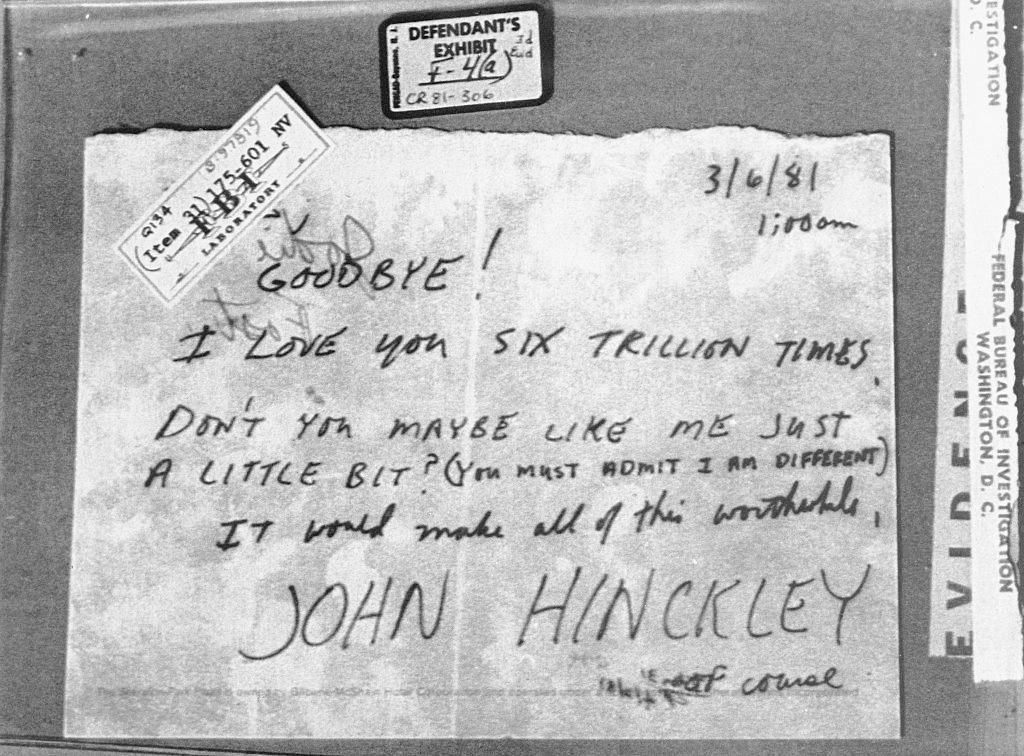 DEFENDANT'S
EXHIBIT
Id
Evid
F-4(a)
CR 81-306
Q134
(Item 31) 175-601 NV
FBI
LABORATORY
3/6/81
1:00am
GOODBYE!
I LOVE you SIX TRILLION TIMES.
DON'T YOU MAYBE LIKE ME JUST
A LITTLE BIT? (YOU MUST ADMIT I AM DIFFERENT)
IT would make all of this worthwhile,
JOHN HINCKLEY
of course
EVIDENCE
FEDERAL BUREAU OF INVESTIGATION
WASHINGTON, D. C.
ESTIGATION
D. C.